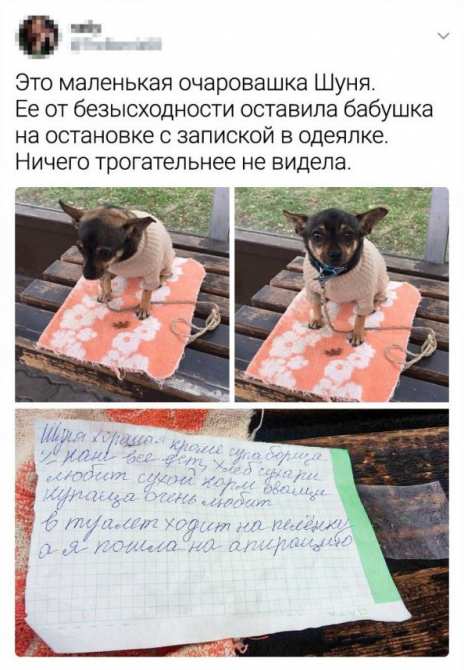 Это маленькая очаровашка Шуня.
Ее от безысходности оставила бабушка
на остановке с запиской в одеялке.
Ничего трогательнее не видела.
Шуня хорошая кроме супа борща
каш все ест, хлеб сухари
любит сухой корм овощи
купаца очень любит
в туалет ходит на пелёнку
а я пошла на апирацыю